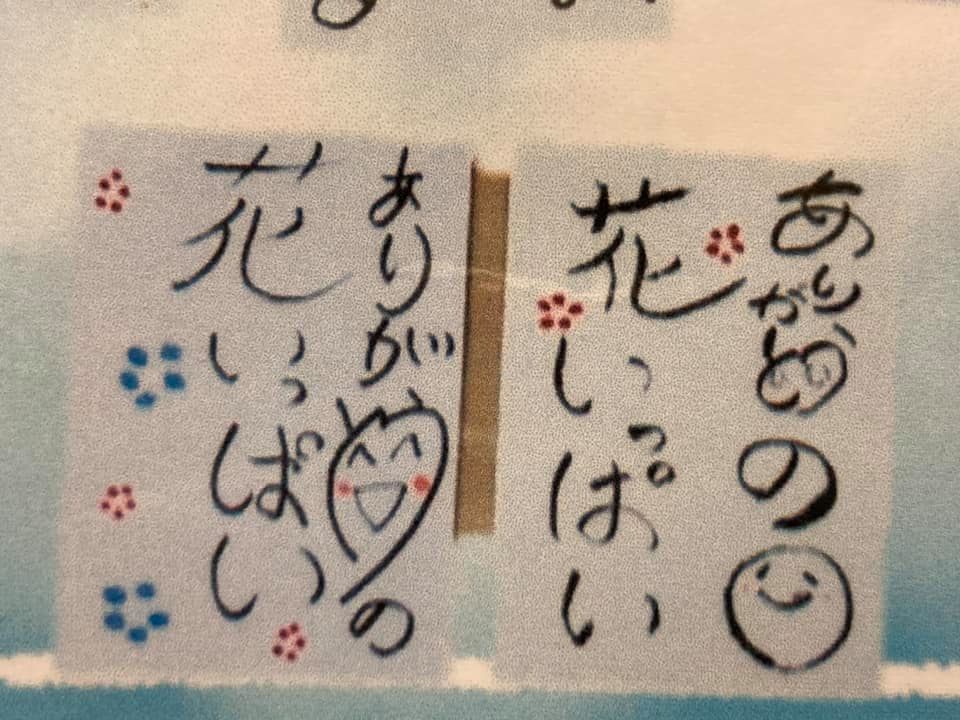 ありがとうの
花いっぱい
ありがとうの
花いっぱい